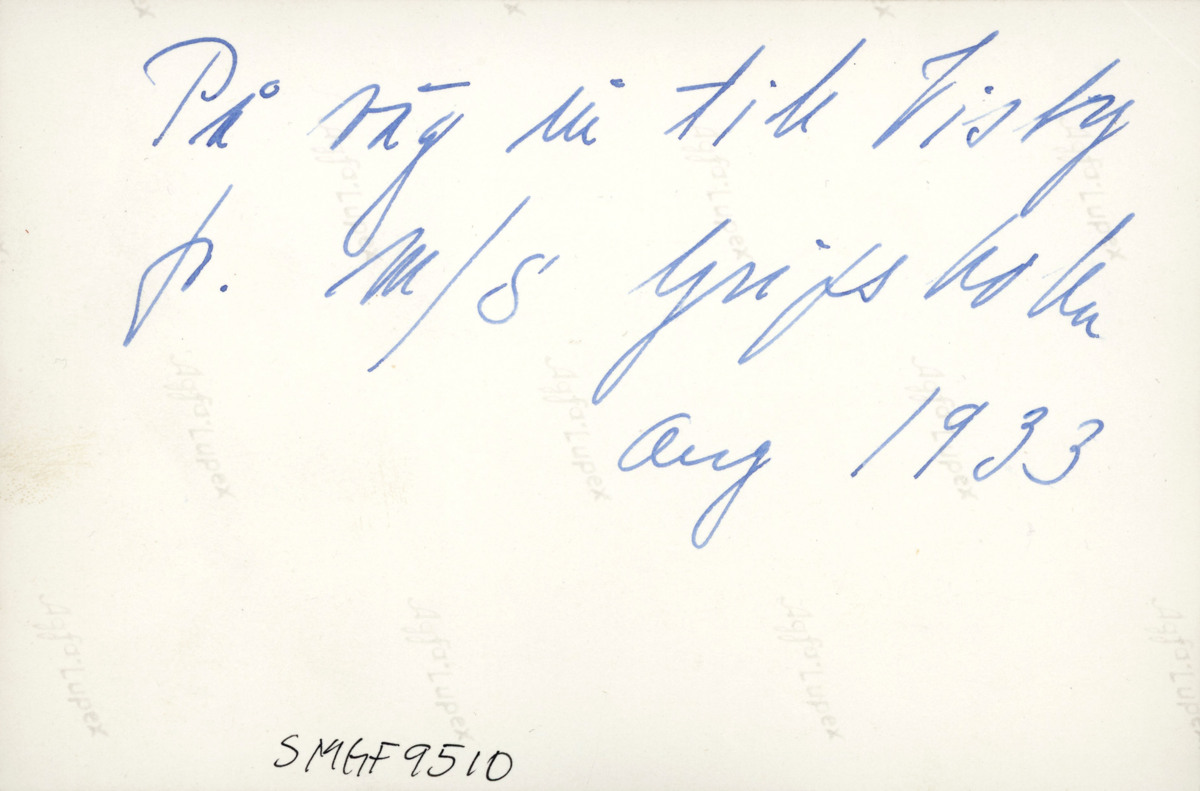 På väg in till Visby
fr. M/S Gripsholm
Aug 1933
Agfa-Lupex
Agfa-Lupex
Agfa-Lupex
Agfa-Lupex
Agfa-Lupex
Agfa-Lupex
Agfa-Lupex
Agfa-Lupex
Agfa-Lupex
Agfa-Lupex
SMGF9510